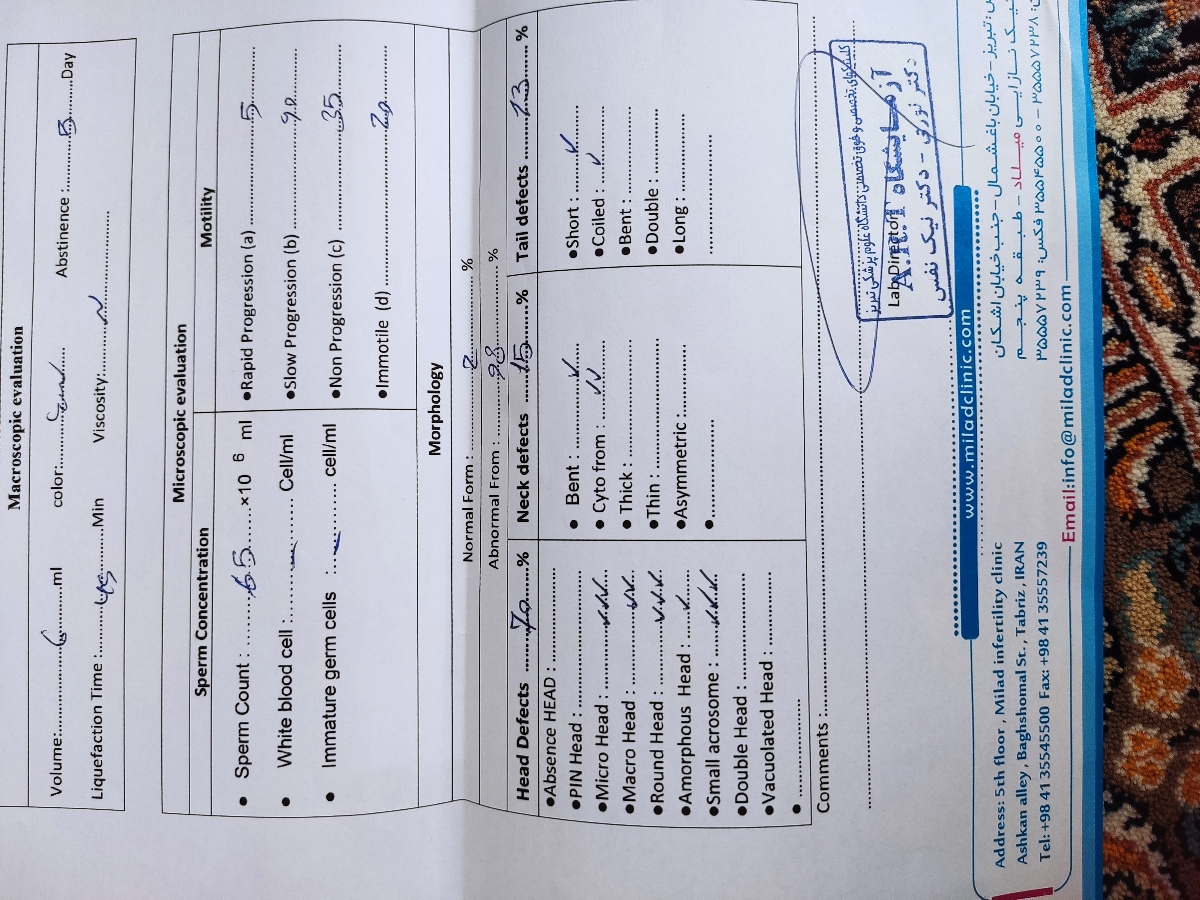 Macroscopic evaluation
Volume:..........6..........ml color:.................... Abstinence :..........3..........Day
Liquefaction Time :....................Min Viscosity:..........N..........
Microscopic evaluation
Sperm Concentration
Sperm Count : ..........65..........x10 6 ml
White blood cell :....................Cell/ml
Immature germ cells :....................cell/ml
Motility
Rapid Progression (a) ..........5..........
Slow Progression (b) ....................
Non Progression (c) ..........35..........
Immotile (d)..........20..........
Morphology
Normal Form :..........2..........%
Abnormal From :..........98..........%
Head Defects ..........70..........%
Absence HEAD :....................
PIN Head :....................
Micro Head :..........✓✓✓..........
Macro Head :..........✓✓..........
Round Head :..........✓✓✓..........
Amorphous Head :..........✓..........
Small acrosome :..........✓✓✓..........
Double Head :....................
Vacuolated Head :....................
Neck defects ..........15..........%
Bent :..........✓..........
Cyto from :..........✓✓..........
Thick :....................
Thin :....................
Asymmetric :....................
Tail defects ..........13..........%
Short :..........✓..........
Coiled :..........✓..........
Bent :....................
Double :....................
Long :....................
Comments :....................
کلینیکهای تخصصی و فوق تخصصی دانشگاه علوم پزشکی تبریز
آزمایشگاه A.R.T
Lab Director
دکتر نوری - دکتر نیک نفس
www.miladclinic.com
Address: 5th floor , Milad infertility clinic
Ashkan alley , Baghshomal St. , Tabriz , IRAN
Tel: +98 41 35545500 Fax: +98 41 35557239
تبریز - خیابان باغشمال - جنب خیابان اشکان
نازایی میلاد - طبقه پنجم
۳۵۵۴۵۵۰۰ فکس: ۳۵۵۵۷۲۳۹
۳۵۵۵۷۲۳۸
Email:info@miladclinic.com